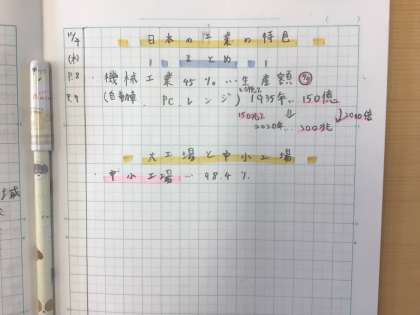 11/9 日本の工業の特色
(水) まとめ
P.8 ・機械工業 45%…生産額
P.9 (自動車 PC レンジ) 1935年…150億
150兆 ↓ ↓2000倍
2020年…300兆
大工場と中小工場
・中小工場…98.4%